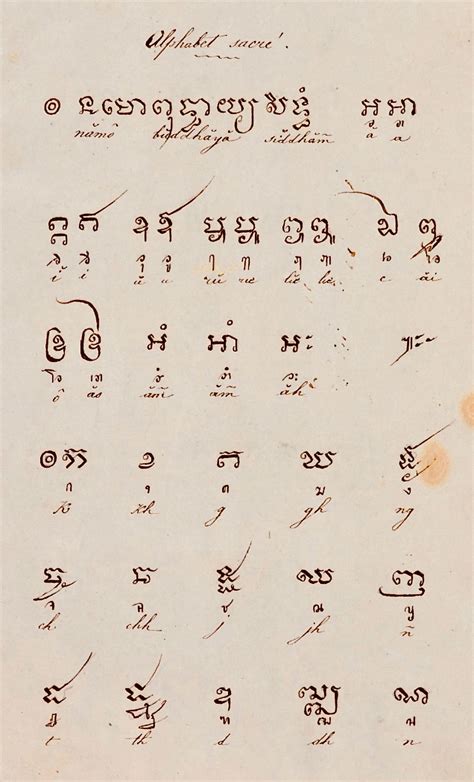 Alphabet sacré.
๏ នមោពុទ្ធាយ្យសិទ្ធំ អ អា
nămô bŭddhāyă sĭddham̃ ă a
ឥ ឦ ឧ ឩ ឫ ឬ ឭ ឮ ឯ ឰ
ĭ i ŭ u rŭ rue lŭe lue e ăi
ឱ ឳ អំ អាំ អះ
ô ăo ăm̃ am̃ ăh
๏ ក ខ គ ឃ ង
k kh g gh ng
ច ឆ ជ ឈ ញ
ch chh j jh ñ
ដ ឋ ឌ ឍ ណ
t th d dh n